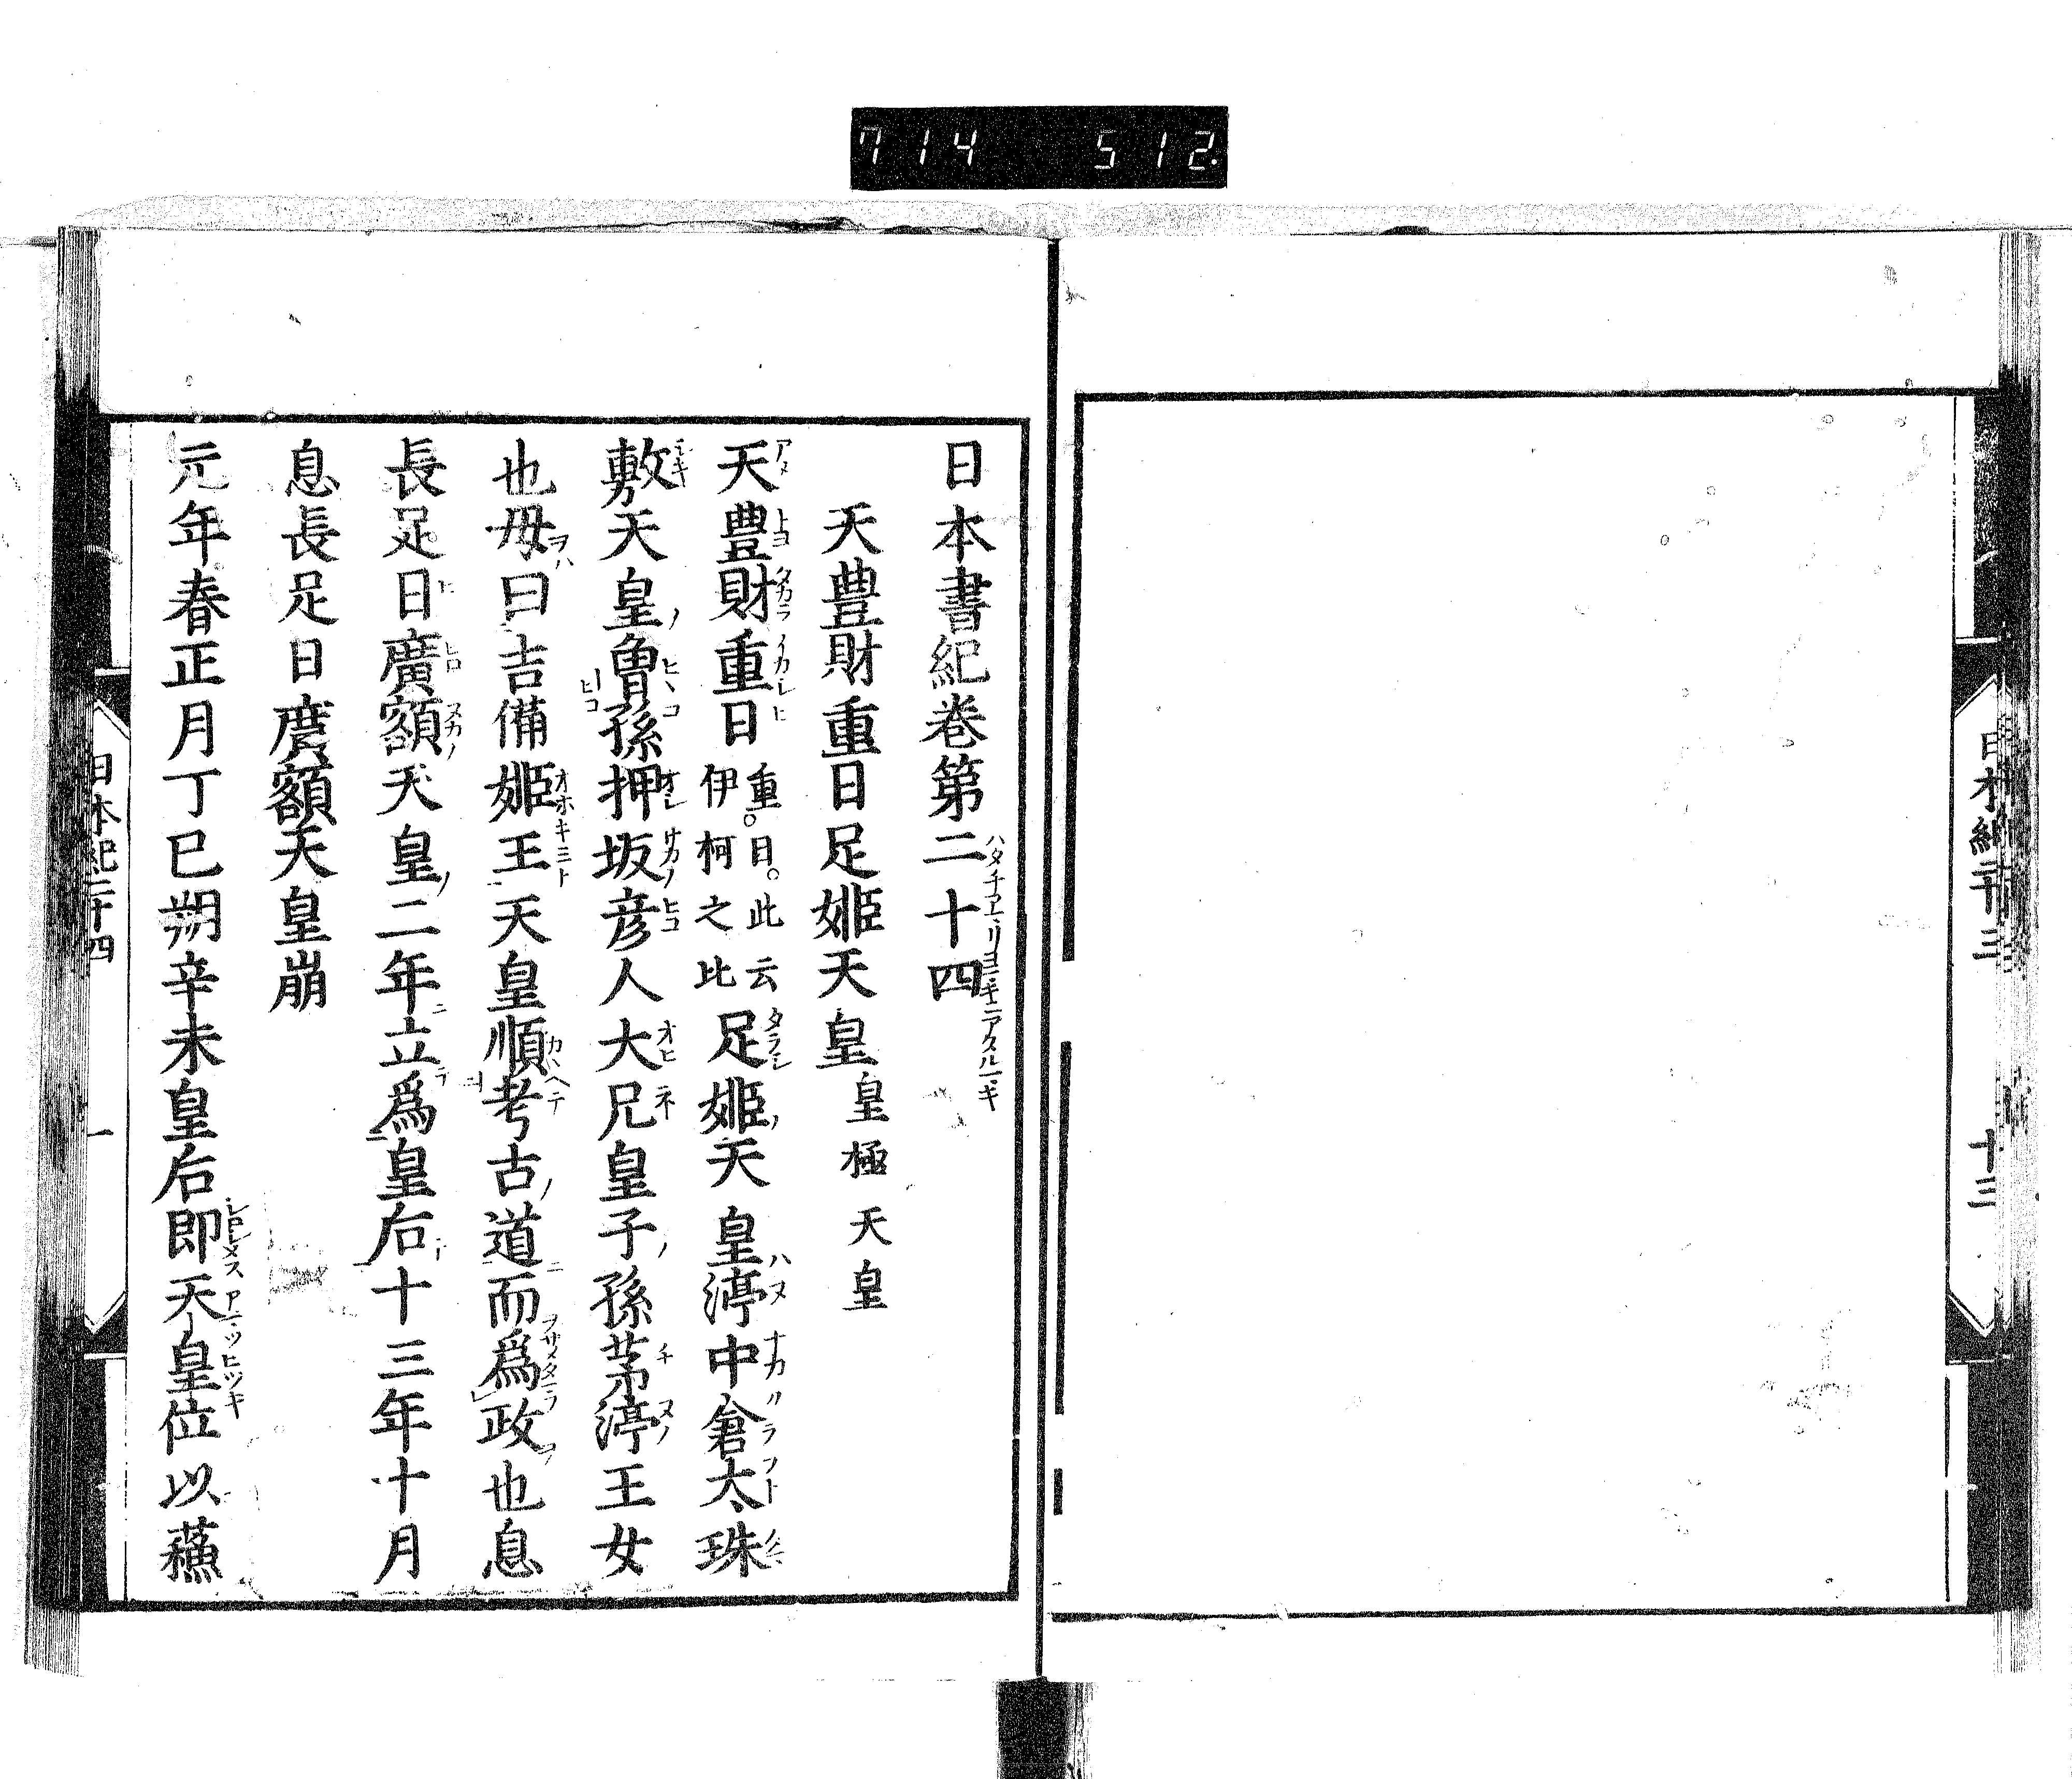 714 512
日本紀二十三 十三
日本書紀巻第二十四
天豊財重日足姫天皇 皇極天皇
天豊財重日 重日。此云伊柯之比 足姫天皇渟中倉太珠
敷天皇曾孫押坂彦人大兄皇子孫茅渟王女
也母曰吉備姫王天皇順考古道而爲政也息
長足日廣額天皇二年立爲皇后十三年十月
息長足日廣額天皇崩
元年春正月丁巳朔辛未皇后即天皇位以蘓
日本紀二十四 一